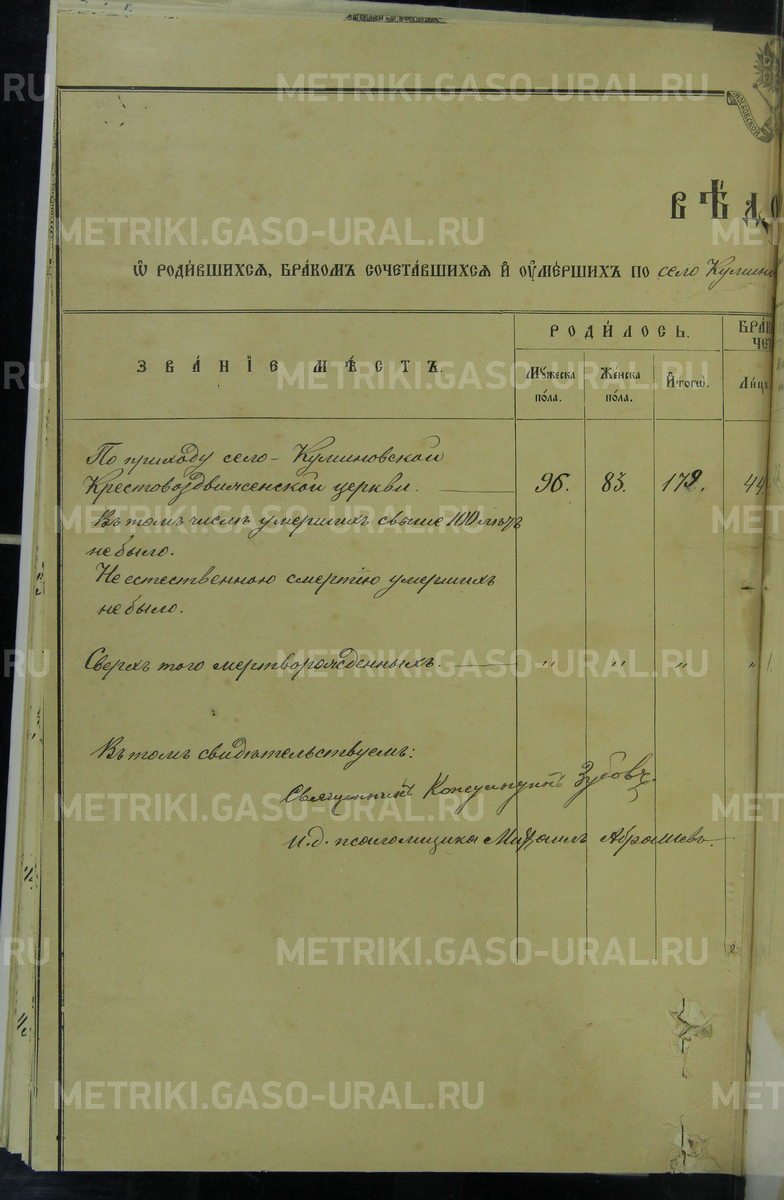 МОСКОВСКОЙ
ВѢДО
Ѡ РОДИ́ВШИХСЯ, БРА́КОМЪ СОЧЕТА́ВШИХСЯ И҆ ОУ҆МЕ́РШИХЪ ПО село Кумино
ЗВА́НІЕ МѢ́СТЪ.
РОДИ́ЛОСЬ.
БРА́К
ЧЕТ
Мꙋ́жеска по́ла.
Же́нска по́ла.
И҆тогѡ̀.
Ли́цъ
По приходу село-Куминовской
Крестовоздвиженской церкви. 96. 83. 179. 44
Въ томъ числѣ умершихъ свыше 100 лѣтъ
не было.
Неестественною смертію умершихъ
не было.
Сверхъ того мертворожденныхъ. " " " "
Въ томъ свидѣтельствуемъ:
Священникъ Константинъ Зубовъ.
и.д. псаломщика Михаилъ
METRIKI.GASO-URAL.RU